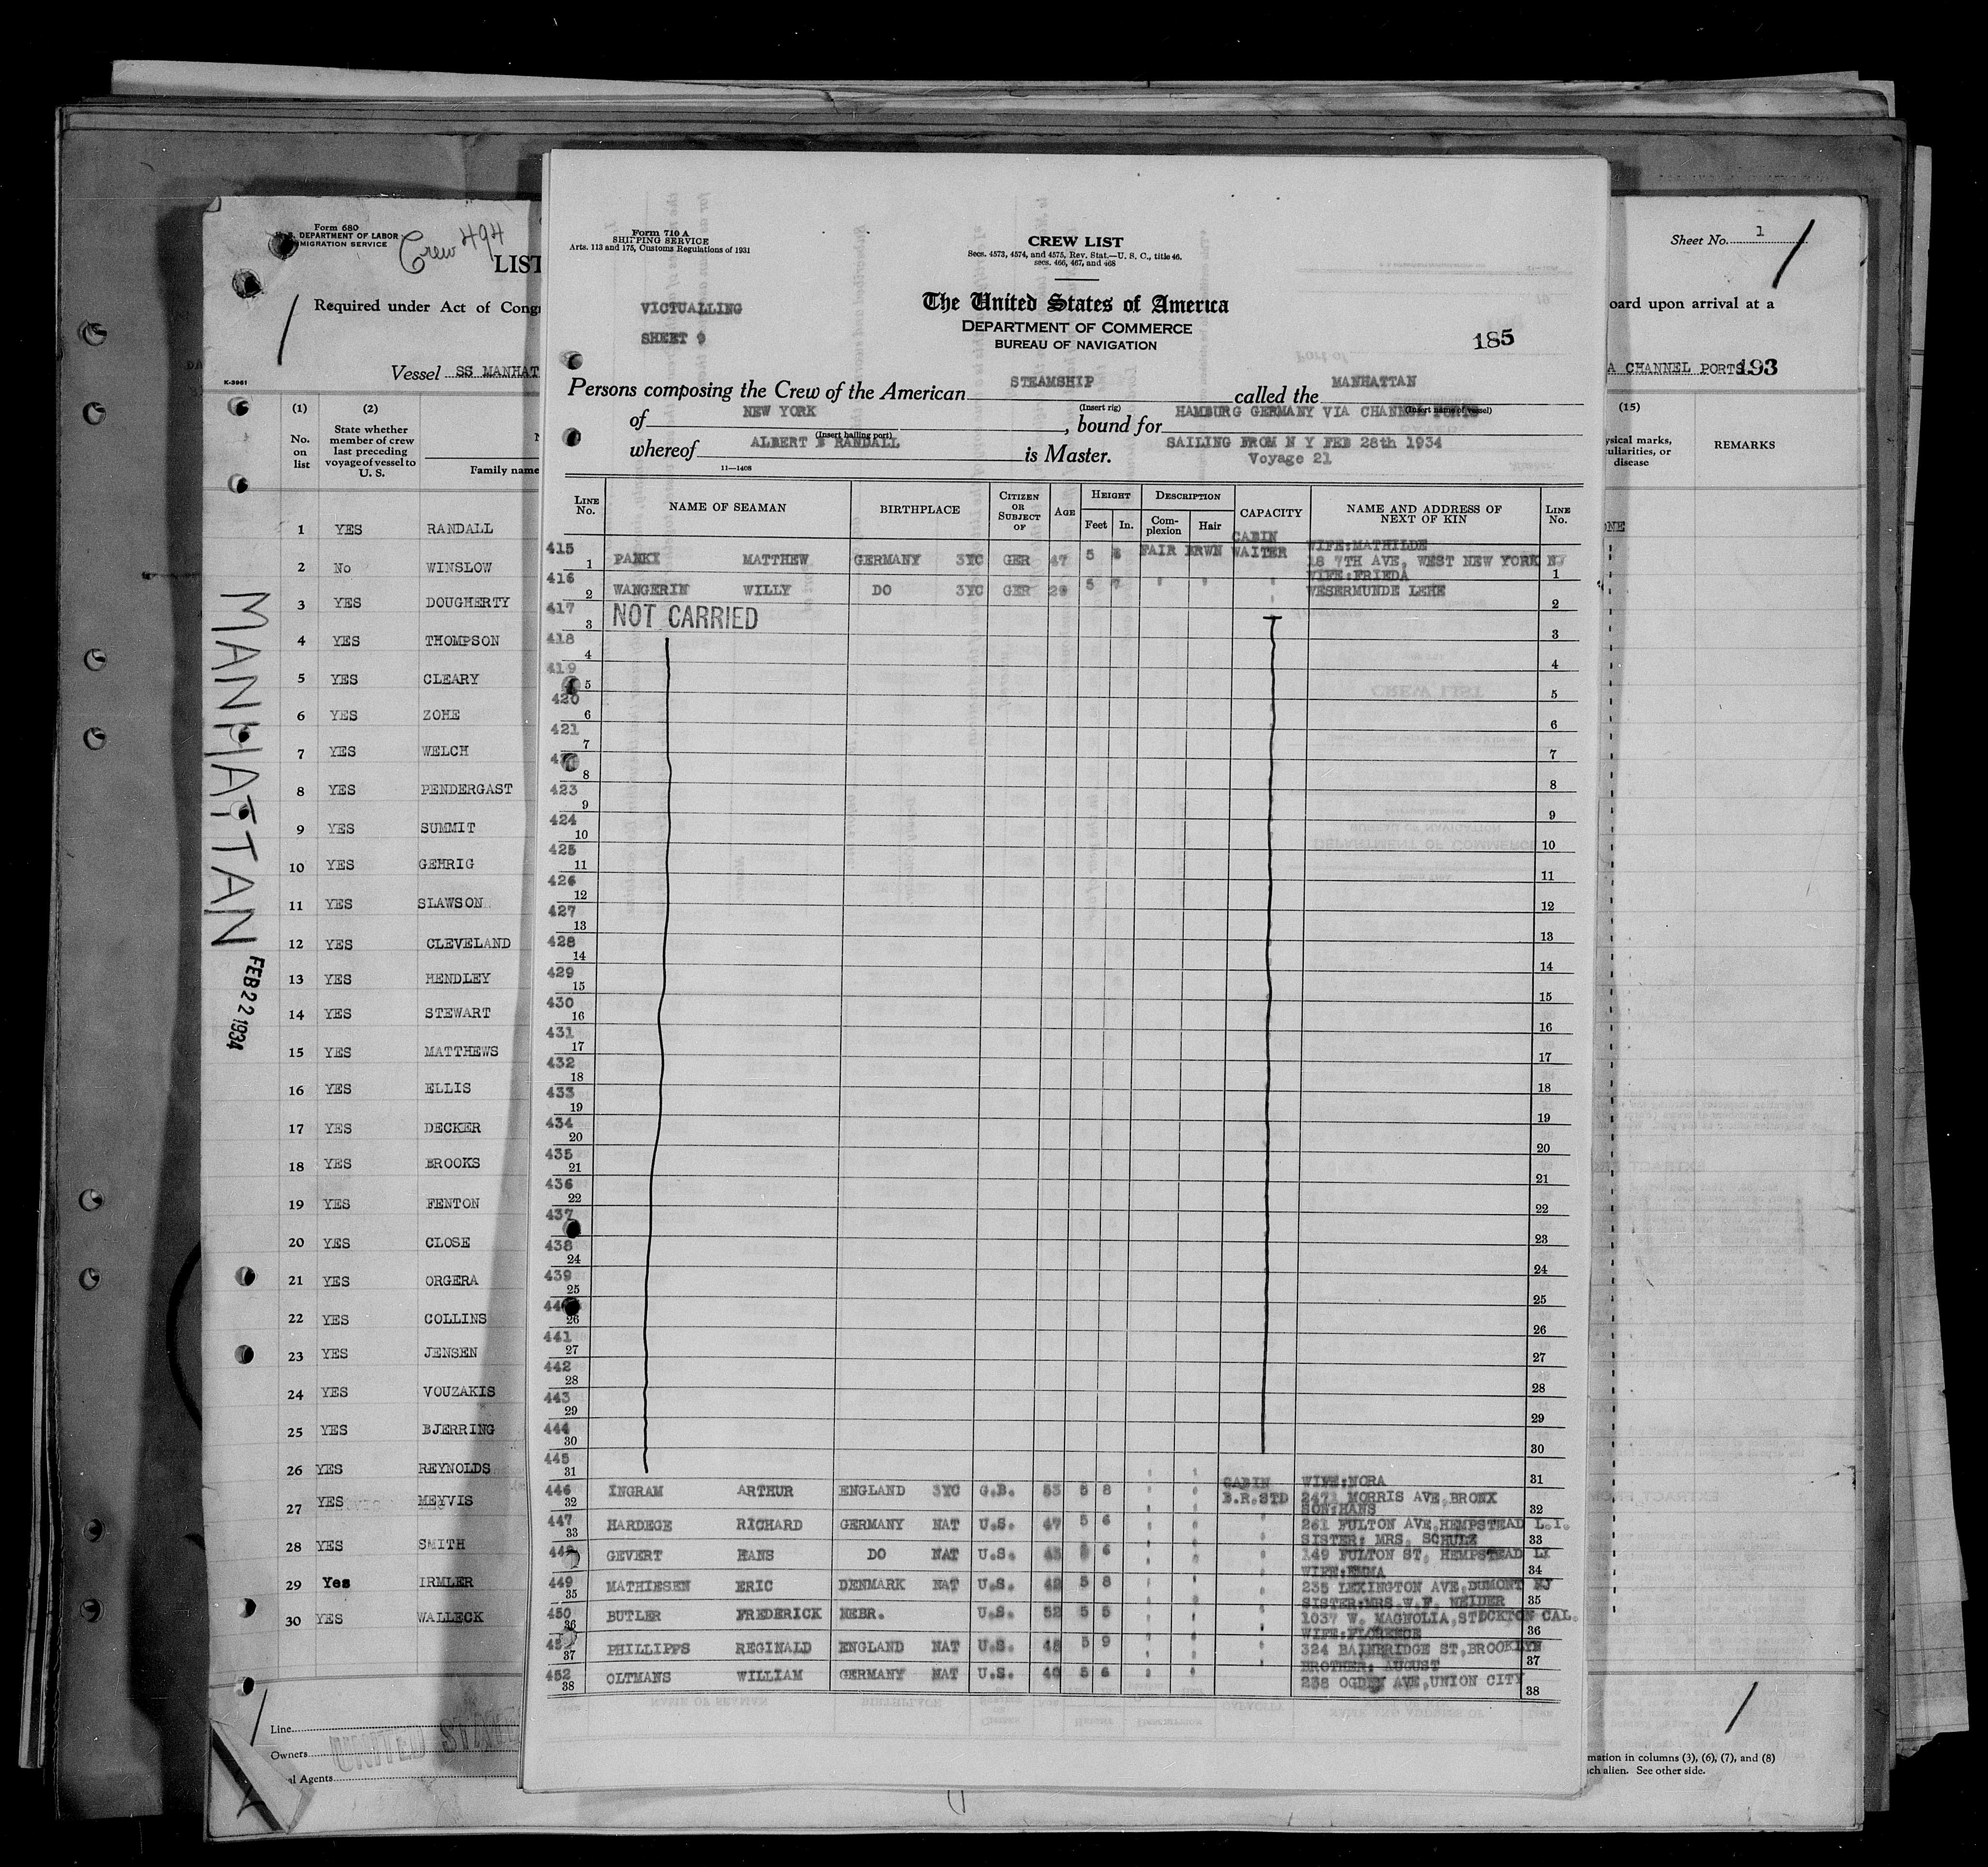 Form 680
DEPARTMENT OF LABOR
MIGRATION SERVICE
Crew 494
LIST
Required under Act of Cong
Vessel SS MANHAT
K-3961
(1) (2)
No. on list
State whether member of crew last preceding voyage of vessel to U. S.
Family name
1 YES RANDALL
2 No WINSLOW
3 YES DOUGHERTY
4 YES THOMPSON
5 YES CLEARY
6 YES ZOHE
7 YES WELCH
8 YES PENDERGAST
9 YES SUMMIT
10 YES GEHRIG
11 YES SLAWSON
12 YES CLEVELAND
13 YES HENDLEY
14 YES STEWART
15 YES MATTHEWS
16 YES ELLIS
17 YES DECKER
18 YES BROOKS
19 YES FENTON
20 YES CLOSE
21 YES ORGERA
22 YES COLLINS
23 YES JENSEN
24 YES VOUZAKIS
25 YES BJERRING
26 YES REYNOLDS
27 YES MEYVIS
28 YES SMITH
29 Yes IRMLER
30 YES WALLECK
Line
Owners
al Agents
UNITED STATES
MANHATTAN
FEB 22 1934
Form 710 A
SHIPPING SERVICE
Arts. 113 and 175, Customs Regulations of 1931
CREW LIST
Secs. 4573, 4574, and 4575, Rev. Stat.—U. S. C., title 46,
secs. 466, 467, and 468
VICTUALLING
SHEET 9
The United States of America
DEPARTMENT OF COMMERCE
BUREAU OF NAVIGATION
185
Persons composing the Crew of the American STEAMSHIP called the MANHATTAN
(Insert rig) (Insert name of vessel)
of NEW YORK, bound for HAMBURG GERMANY VIA CHANNEL PORTS
(Insert hailing port)
whereof ALBERT B RANDALL is Master. SAILING FROM N Y FEB 28th 1934
Voyage 21
11—1408
LINE No. NAME OF SEAMAN BIRTHPLACE CITIZEN OR SUBJECT OF AGE HEIGHT Feet In. DESCRIPTION Complexion Hair CAPACITY NAME AND ADDRESS OF NEXT OF KIN LINE No.
CABIN WIFE:MATHILDE
415 1 PANKI MATTHEW GERMANY 3YC GER 47 5 FAIR BRWN WAITER 18 7TH AVE, WEST NEW YORK NJ 1
WIFE:FRIEDA
416 2 WANGERIN WILLY DO 3YC GER 29 5 7 " " " WESERMUNDE LEHE 2
417 3 NOT CARRIED 3
418 4 4
419 5 5
420 6 6
421 7 7
8 8
423 9 9
424 10 10
425 11 11
426 12 12
427 13 13
428 14 14
429 15 15
430 16 16
431 17 17
432 18 18
433 19 19
434 20 20
435 21 21
436 22 22
437 23
438 24 24
439 25 25
26 26
441 27 27
442 28 28
443 29 29
444 30 30
445 31 31
CABIN WIFE:NORA
446 32 INGRAM ARTHUR ENGLAND 3YC G.B. 53 5 8 " " B.R.STD 2471 MORRIS AVE,BRONX 32
SON:HANS
447 33 HARDEGE RICHARD GERMANY NAT U.S. 47 5 6 " " " 261 FULTON AVE,HEMPSTEAD L.I. 33
SISTER: MRS. SCHULZ
448 GEVERT HANS DO NAT U.S. 6 " " " 149 FULTON ST, HEMPSTEAD LI 34
WIFE:EMMA
449 35 MATHIESEN ERIC DENMARK NAT U.S. 42 5 8 " " " 235 LEXINGTON AVE,DUMONT NJ 35
SISTER:MRS.W.F. NEIDER
450 36 BUTLER FREDERICK NEBR. U.S. 52 5 5 " " " 1037 W. MAGNOLIA,STOCKTON CAL. 36
WIFE:FLORENCE
37 PHILLIPPS REGINALD ENGLAND NAT U.S. 48 5 9 " " " 324 BAINBRIDGE ST,BROOKLYN 37
BROTHER: AUGUST
452 38 OLTMANS WILLIAM GERMANY NAT U.S. 40 5 6 " " 238 OGDEN AVE,UNION CITY 38
Sheet No. 1
oard upon arrival at a
A CHANNEL PORTS 193
(15)
ysical marks,
uliarities, or
disease
REMARKS
NE
mation in columns (3), (6), (7), and (8)
ch alien. See other side.